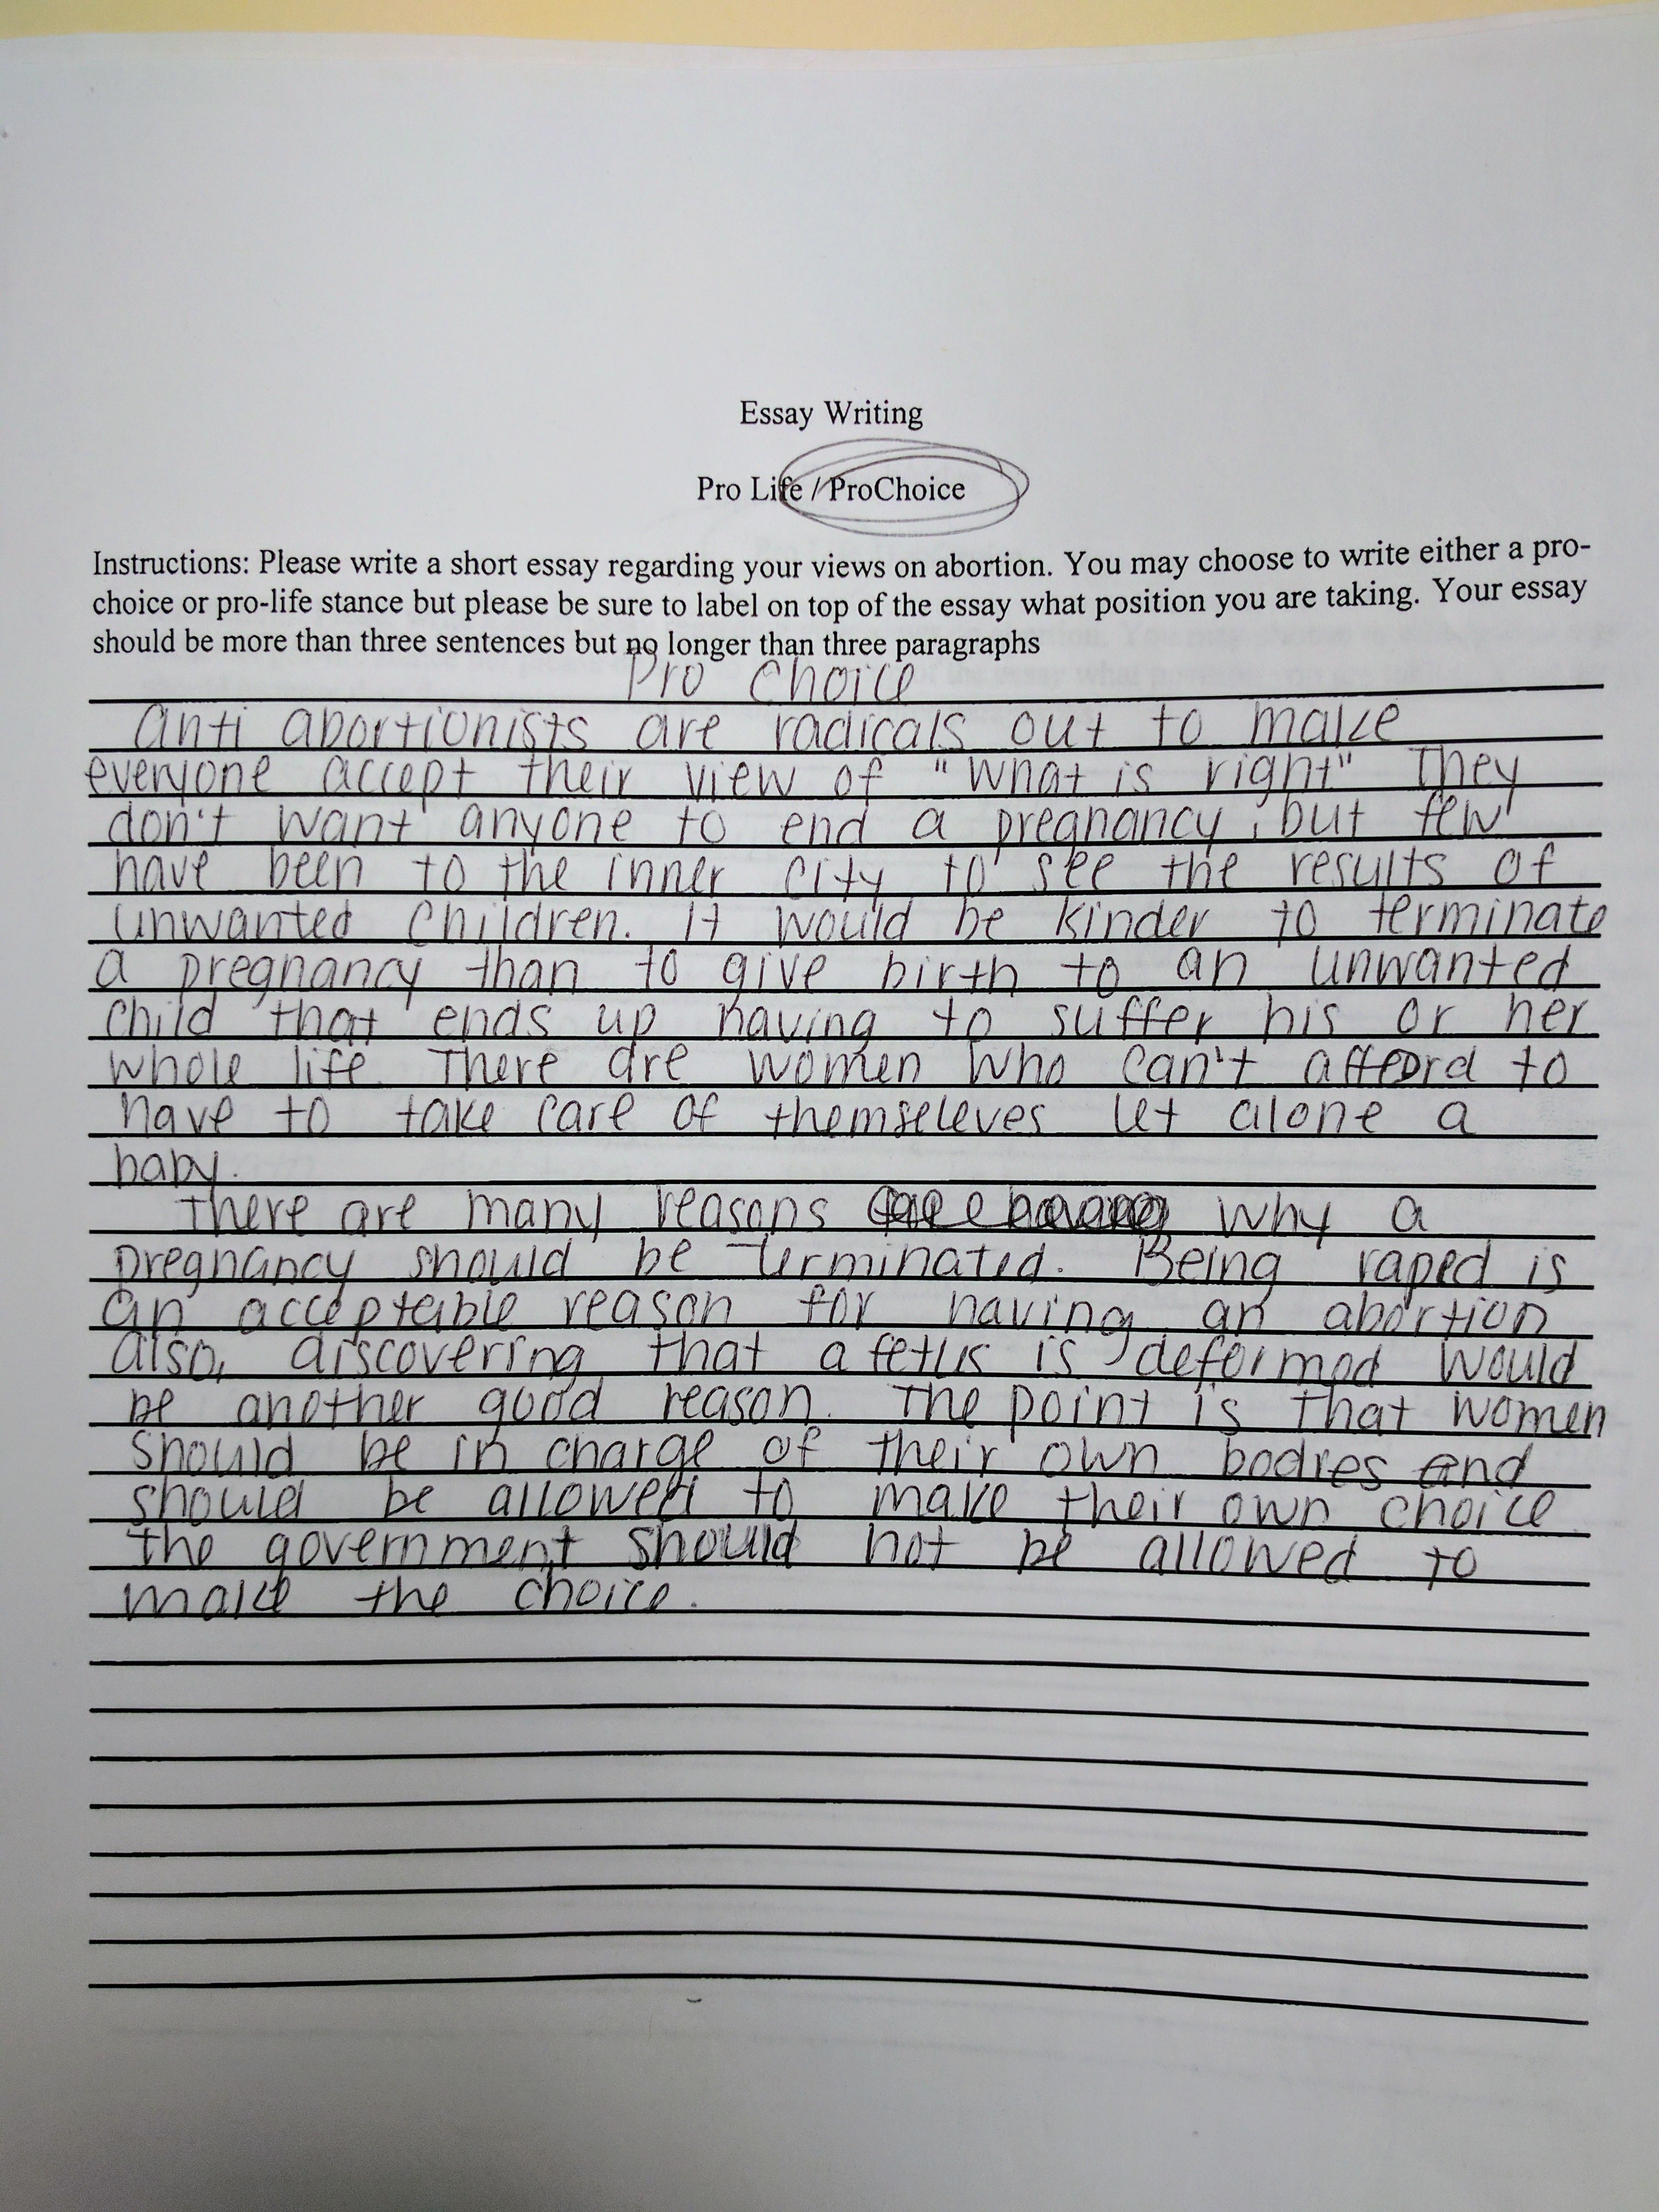 Essay Writing
Pro Life / ProChoice
Instructions: Please write a short essay regarding your views on abortion. You may choose to write either a pro-
choice or pro-life stance but please be sure to label on top of the essay what position you are taking. Your essay
should be more than three sentences but no longer than three paragraphs
Pro Choice
Anti abortionists are radicals out to make
everyone accept their view of "what is right" They
don't want anyone to end a pregnancy, but few
have been to the inner city to see the results of
unwanted children. It would be kinder to terminate
a pregnancy than to give birth to an unwanted
child that ends up having to suffer his or her
whole life. There are women who can't afford to
have to take care of themseleves let alone a
baby.
There are many reasons why a
pregnancy should be terminated. Being raped is
an acceptable reason for having an abortion
also, discovering that a fetus is deformed would
be another good reason. The point is that women
should be in charge of their own bodies and
should be allowed to make their own choice.
the government should not be allowed to
make the choice.